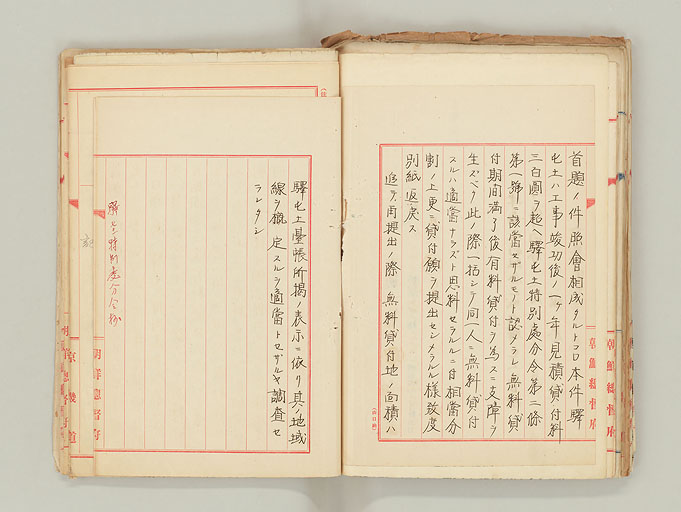 首題ノ件照會相成タルトコロ本件驛
屯土ハ工事竣功後ノ一ケ年見積貸付料
三百圓ヲ超ヘ驛屯土特別處分令第二條
第一號ニ該當セザルモノト認メラレ無料貸
付期間滿了後有料貸付ヲ為スニ支障ヲ
生ズベク此ノ際一括シテ同一人ニ無料貸付
スルハ適當ナラズト思料セラルルニ付相當分
割ノ上更ニ貸付願ヲ提出セシメラルル樣致度
別紙返戻ス
追テ再提出ノ際無料貸付地ノ面積ハ
驛屯土臺帳所揭ノ表示ニ依リ其ノ地域
線ヲ確定スルヲ適當トセザルヤ調査セ
ラレタシ
驛屯土特別處分令抄
朝鮮總督府
朝鮮總督府
朝鮮總督府
京畿道